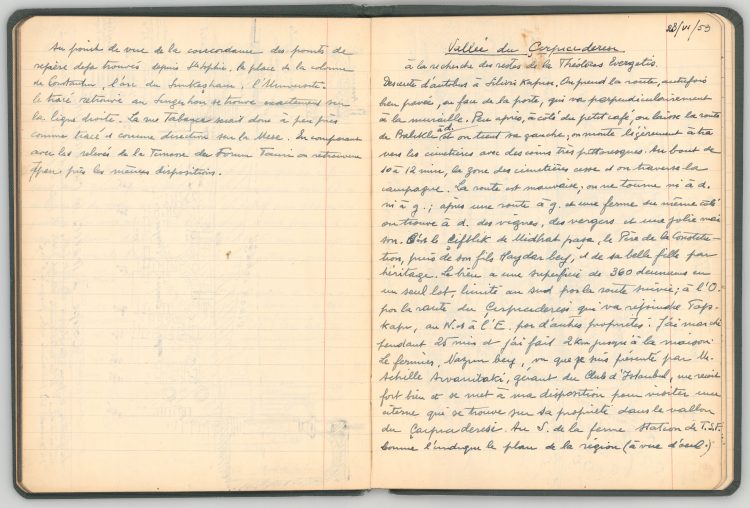 Au point de vue de la concordance des points de
repère deja trouvés depuis Ste Sophie, la place de la colonne
de Constantin, l'arc du Simkeşhane, l'Univers
le tracé retrouvé au Simkeşhan se trouve exactement sur
la ligne droite. La via Tabacea serait donc à peu près
comme tracé et comme direction sur la Mese. En comparant
avec les relevés de la Tenesse du Forum Tauri on retrouverait
à peu près les mêmes dispositions.
23/VI/53
Vallée du Çırpıcıderesi
à la recherche des restes de la Théotocos Evergetis.
Descente d'autobus à Silivri Kapusu. On prend la route, autrefois
bien pavée, en face de la porte, qui va perpendiculairement
à la muraille. Peu après, à côté du petit café, on laisse la route
de Balıklı à dr. on tient sa gauche; on monte légèrement à tra
vers les cimetières avec des coins très pittoresques. Au bout de
10 à 12 min, la zone des cimetières cesse et on traverse la
campagne. La route est mauvaise; on ne tourne ni à d.
ni à g.; après une route à g. et une ferme du même côté
on trouve à d. des vignes, des vergers et une jolie mai
son. C'est le Çiftlik de Midhat paşa, le Père de la Constitu-
tion, puis de son fils Haydar bey, et de sa belle fille par
héritage. Le bien a une superficie de 360 deunums en
un seul lot, limité au sud par la route suivie; à l'O.
par la route du Çırpıcıderesi qui va rejoindre Top-
kapu, au N. et à l'E. par d'autres propriétés. J'ai marché
pendant 25 min et j'ai fait 2 km jusqu'à la maison.
Le fermier, Nazım bey, vu que je suis présenté par M.
Achille gérant du Club d'Istanbul, me reçoit
fort bien et se met à ma disposition pour visiter une
citerne qui se trouve sur sa propriété dans le vallon
du Çırpıcıderesi. Au S. de la ferme station de T.S.F.
comme l'indique le plan de la région (à vue d'oeil.)